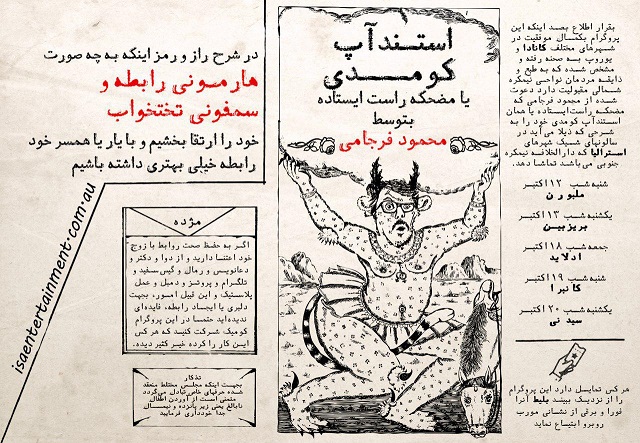 استندآپ
کومدی
یا مضحکه راست ایستاده
بتوسط
محمود فرجامی
در شرح راز و رمز اینکه به چه صورت
هارمونی رابطه و
سمفونی تختخواب
خود را ارتقا بخشیم و با یار یا همسر خود
رابطه خیلی بهتری داشته باشیم
isaentertainment.com.au
مژده
اگر به حفظ صحت روابط با زوج
خود اعتنا دارید و از دوا و دکتر و
دعانویس و رمال و گیس سفید و
تلگرام و پروتز و دمبل و عمل
پلاستیک و این قبیل امور، بجهت
دلبری یا ایجاد رابطه، فایده‌ای
ندیده‌اید حتما در این پروگرام
کومیک شرکت کنید که هر کس
این کار را کرده خیر کثیر دیده.
تذکار
بجهت اینکه مجلس مختلط منعقد
شده حرفهای خاص تبادل میگردد
متمنی است از آوردن اطفال
نابالغ یعنی زیر پانزده و نیمسال
جدا خودداری فرمایید
بقرار اطلاع بصد اینکه این
پروگرام بکمال موفقیت در
شهرهای مختلف کانادا و
یوروپ به صحنه رفته و
مشخص شده که به طبع و
ذایقه مردمان نواحی نیمکره
شمالی مقبولیت دارد دعوت
شده از محمود فرجامی که
مضحکه راست‌ایستاده یا همان
استندآپ کومدی خود را به
شرحی که ذیلا می‌آید در
سالونهای شیک شهرهای
استرالیا که دارالخلافه نیمکره
جنوبی می‌باشد تماشا دهد.
شنبه شب ۱۲ اکتبر
ملبورن
یکشنبه شب ۱۳ اکتبر
بریزبین
جمعه شب ۱۸ اکتبر
ادلاید
شنبه شب ۱۹ اکتبر
کانبرا
یکشنبه شب ۲۰ اکتبر
سیدنی
هر کس تمایسل دارد این پروگرام
را از نزدیک ببیند بلیط آنرا
فورا و برقی از نشانی مورب
روبرو ابتیاع نماید